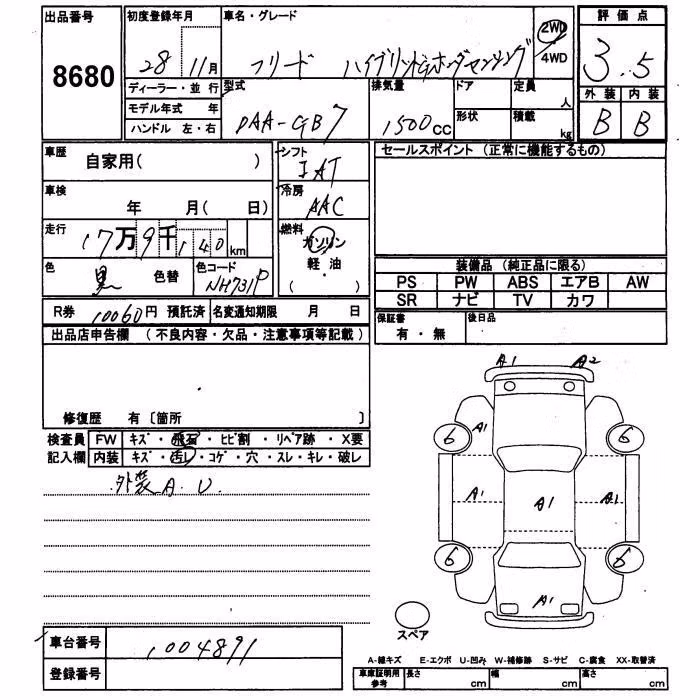 出品番号 初度登録年月 車名・グレード 2WD 4WD 評価点
8680 28 11月 フリード ハイブリッドGホンダセンシング 3.5
ディーラー・並行 型式 排気量 ドア 定員 人 外装 内装
モデル年式 年 DAA-GB7 1500cc 形状 積載 kg B B
ハンドル 左・右
車歴 自家用( ) シフト IAT セールスポイント (正常に機能するもの)
車検 年 月( 日) 冷房 AAC
走行 17万9千140km 燃料 ガソリン
軽・油
( )
色 黒 色替 色コード NH731P 装備品 (純正品に限る)
PS PW ABS エアB AW
SR ナビ TV カワ
R券 10060円 預託済 名変通知期限 月 日 保証書 有・無 後日品
出品店申告欄 (不良内容・欠品・注意事項等記載)
修復歴 有 〔箇所 〕
検査員 FW キズ・飛石・ヒビ割・リペア跡・X要
記入欄 内装 キズ・汚レ・コゲ・穴・スレ・キレ・破レ
外装A.U.
A1 A2
A1
6 6
A1 A1 A1
6 6
A1
スペア
車台番号 1004891
登録番号
A-線キズ E-エクボ U-凹み W-補修跡 S-サビ C-腐食 XX-取替済
車庫証明用参考 長さ cm 幅 cm 高さ cm